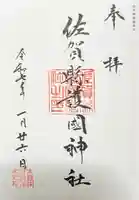 奉拝
佐賀縣護國神社
令和七年
一月廿六日